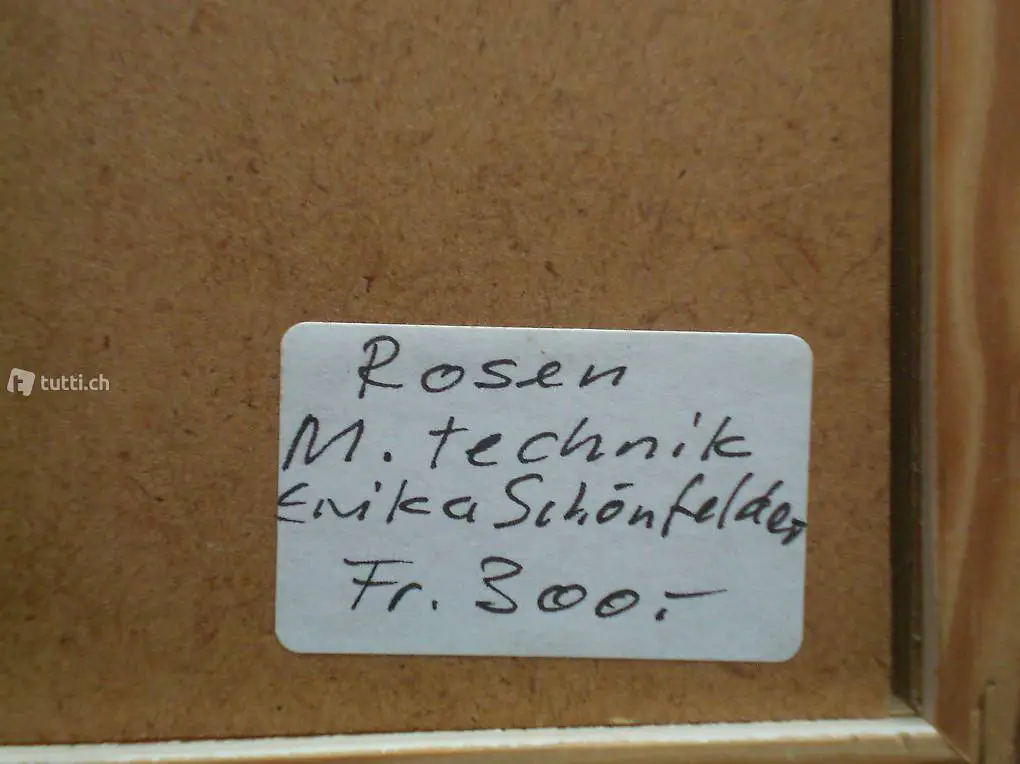 Rosen
M. technik
Erika Schönfelder
Fr. 300.-
tutti.ch